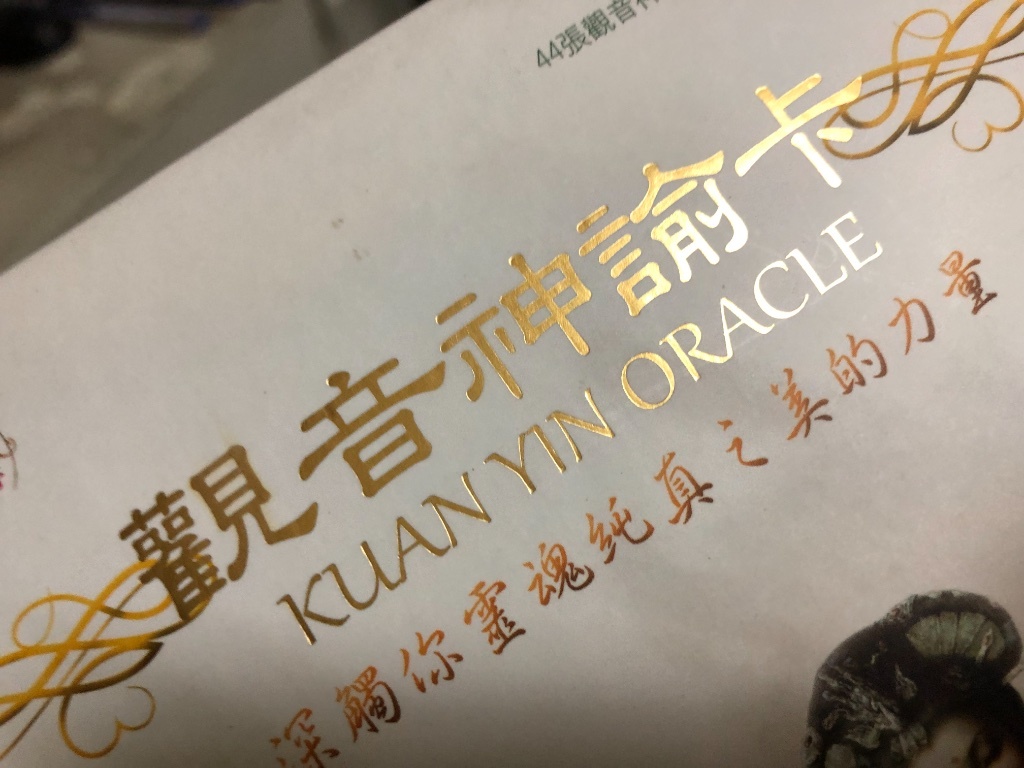 44張觀音神
觀音神諭卡
KUAN YIN ORACLE
深觸你靈魂純真之美的力量